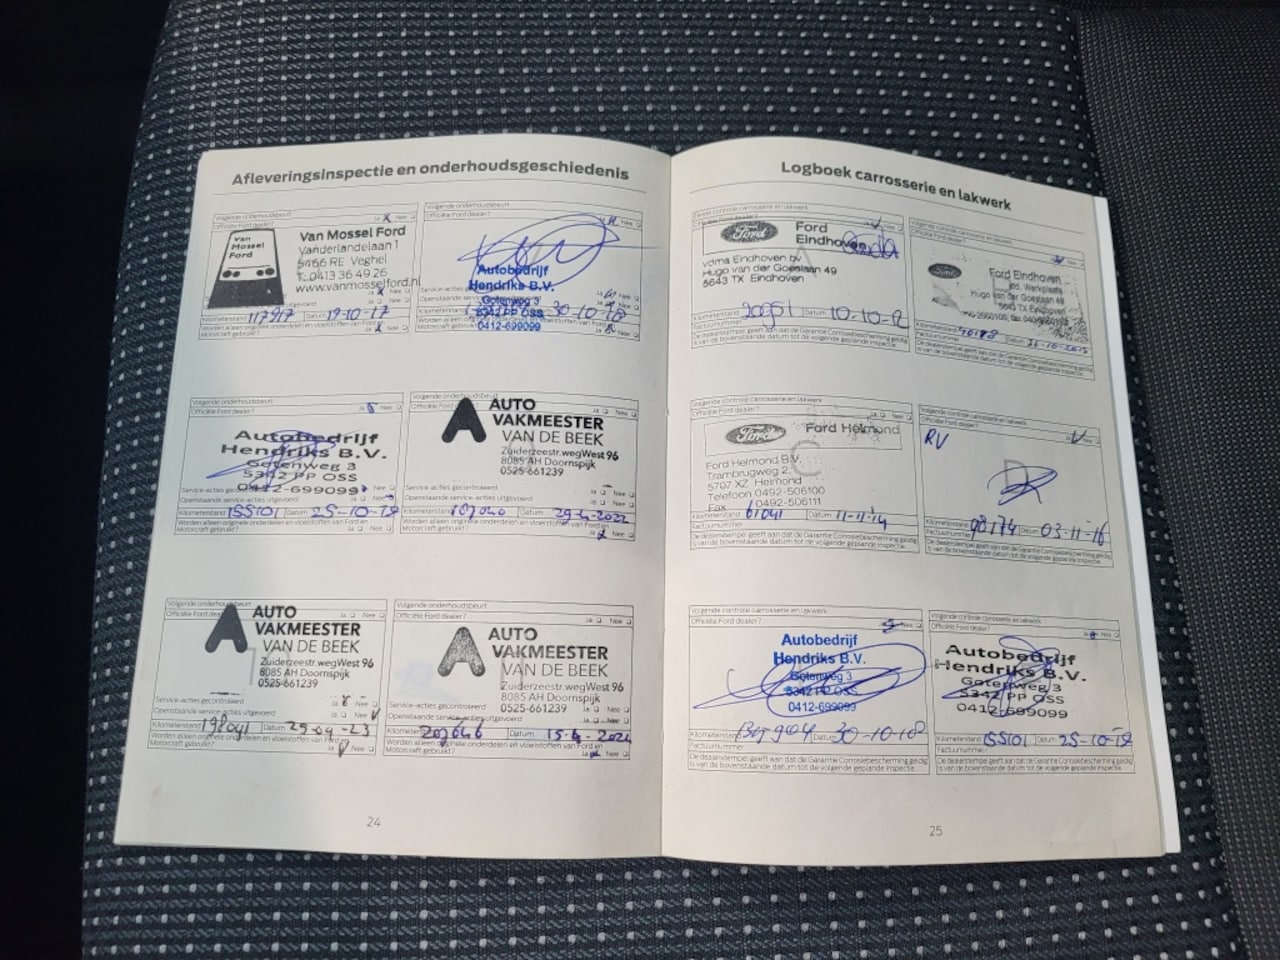 Afleveringsinspectie en onderhoudsgeschiedenis
Volgende onderhoudsbeurt
Officiële Ford dealer? Ja Nee
Van Mossel Ford
Van Mossel Ford
Vanderlandelaan 1
5466 RE Veghel
T: 0413 36 49 26
www.vanmosselford.nl
Kilometerstand 117917 Datum 19-10-17
Worden alleen originele onderdelen en vloeistoffen van Ford en
Motorcraft gebruikt? Ja Nee
Volgende onderhoudsbeurt
Officiële Ford dealer? Ja Nee
Autobedrijf
Hendriks B.V.
Gotenweg 3
5342 PP OSS
0412-699099
Kilometerstand Datum 30-10-18
Volgende onderhoudsbeurt
Officiële Ford dealer? Ja Nee
Autobedrijf
Hendriks B.V.
Gotenweg 3
5342 PP OSS
0412-699099
Service-acties gecontroleerd
Openstaande service-acties uitgevoerd
Kilometerstand 155101 Datum 25-10-19
Worden alleen originele onderdelen en vloeistoffen van Ford en
Motorcraft gebruikt? Ja Nee
Volgende onderhoudsbeurt
Officiële Ford Ja Nee
AUTO
VAKMEESTER
VAN DE BEEK
Zuiderzeestr.wegWest 96
8085 AH Doornspijk
0525-661239
Service-acties gecontroleerd Ja Nee
Openstaande service-acties uitgevoerd
Kilometerstand Datum 29-4-2022
Worden alleen originele onderdelen en vloeistoffen van Ford en
Motorcraft gebruikt? Ja Nee
Volgende onderhoudsbeurt
Officiële Ford Ja Nee
AUTO
VAKMEESTER
VAN DE BEEK
Zuiderzeestr.wegWest 96
8085 AH Doornspijk
0525-661239
Service-acties gecontroleerd Ja Nee
Openstaande service-acties uitgevoerd Ja Nee
Kilometerstand 198041 Datum 25-04-23
Worden alleen originele onderdelen en vloeistoffen van Ford en
Motorcraft gebruikt? Ja Nee
Volgende onderhoudsbeurt
Officiële Ford dealer? Ja Nee
AUTO
VAKMEESTER
VAN DE BEEK
Zuiderzeestr.wegWest 96
8085 AH Doornspijk
0525-661239
Service-acties gecontroleerd Ja Nee
Openstaande service-acties uitgevoerd Ja Nee
Kilometerstand 209646 Datum 15-4-2024
Worden alleen originele onderdelen en vloeistoffen van Ford en
Motorcraft gebruikt? Ja Nee
24
Logboek carrosserie en lakwerk
Eerste controle carrosserie en lakwerk
Officiële Ford dealer? Ja Nee
Ford
Ford
Eindhoven
vdma Eindhoven bv
Hugo van der Goeslaan 49
5643 TX Eindhoven
Kilometerstand 20051 Datum 10-10-12
Factuurnummer
De dealerstempel geeft aan dat de Garantie Corrosiebescherming geldig
is van de bovenstaande datum tot de volgende geplande inspectie.
Volgende controle carrosserie en lakwerk
Ford
Ford Eindhoven
Hugo van der Goeslaan 49
5643 TX Eindhoven
Kilometerstand Datum
Factuurnummer
De dealerstempel geeft aan dat de Garantie Corrosiebescherming geldig
is van de bovenstaande datum tot de volgende geplande inspectie.
Volgende controle carrosserie en lakwerk
Officiële Ford dealer? Ja Nee
Ford
Ford Helmond
Ford Helmond B.V.
Trambrugweg 2
5707 XZ Helmond
Telefoon 0492-506100
Fax 0492-506111
Kilometerstand 61041 Datum 11-11-14
Factuurnummer
De dealerstempel geeft aan dat de Garantie Corrosiebescherming geldig
is van de bovenstaande datum tot de volgende geplande inspectie.
Volgende controle carrosserie en lakwerk
Officiële Ford dealer? Ja Nee
RV
Kilometerstand 98174 Datum 03-11-16
Factuurnummer
De dealerstempel geeft aan dat de Garantie Corrosiebescherming geldig
is van de bovenstaande datum tot de volgende geplande inspectie.
Volgende controle carrosserie en lakwerk
Officiële Ford dealer? Nee
Autobedrijf
Hendriks B.V.
Gotenweg 3
5342 PP OSS
0412-699099
Kilometerstand Datum
Factuurnummer
De dealerstempel geeft aan dat de Garantie Corrosiebescherming geldig
is van de bovenstaande datum tot de volgende geplande inspectie.
Volgende controle carrosserie en lakwerk
Officiële Ford dealer? Ja Nee
Autobedrijf
Hendriks B.V.
Gotenweg 3
5342 PP OSS
0412-699099
Kilometerstand 155101 Datum 25-10-19
Factuurnummer
De dealerstempel geeft aan dat de Garantie Corrosiebescherming geldig
is van de bovenstaande datum tot de volgende geplande inspectie.
25